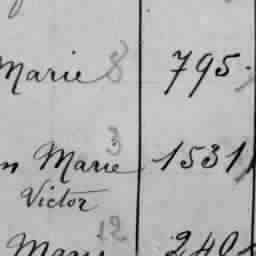 Marie 8 795.
3
n Marie 1531
Victor
12
Marie 240